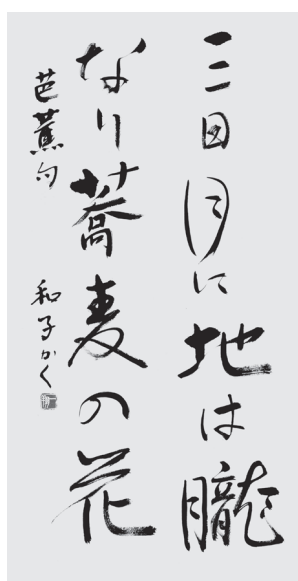 三日月に地は朧
なり蕎麦の花
芭蕉句
和子かく